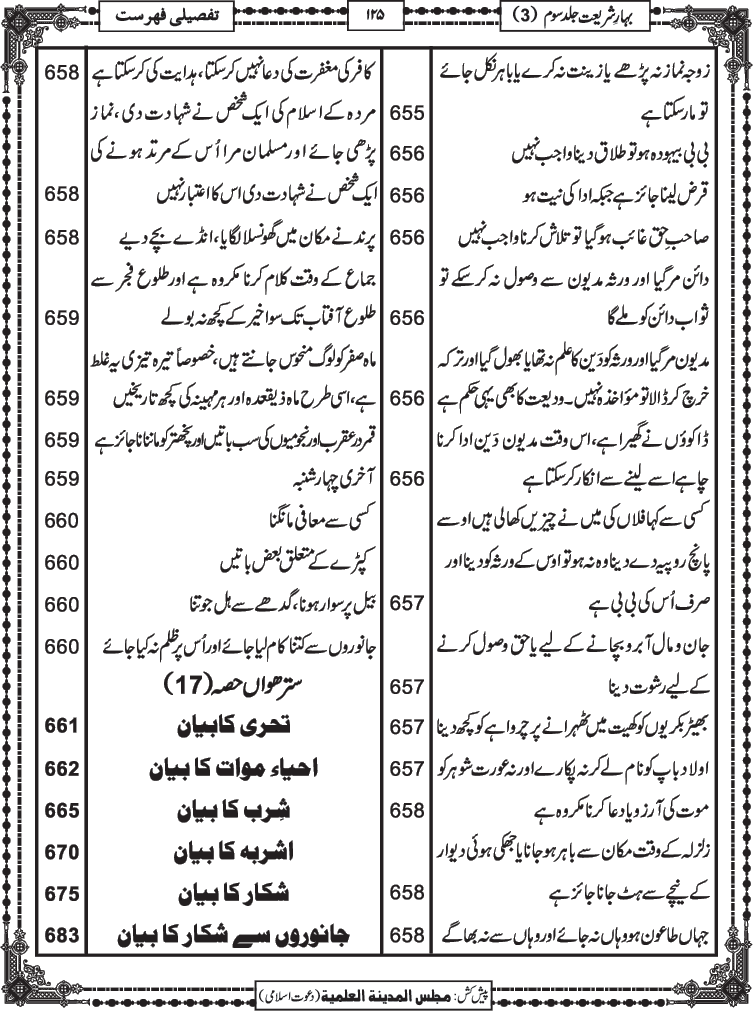 بہارِ شریعت جلد سوم (3)
۱۲۵
تفصیلی فہرست
زوجہ نماز نہ پڑھے یا زینت نہ کرے یا باہر نکل جائے
تو مار سکتا ہے 655
بی بی بیہودہ ہو تو طلاق دینا واجب نہیں 656
قرض لینا جائز ہے جبکہ ادا کی نیت ہو 656
صاحبِ حق غائب ہو گیا تو تلاش کرنا واجب نہیں 656
دائن مر گیا اور ورثہ مدیون سے وصول نہ کر سکے تو
ثواب دائن کو ملے گا 656
مدیون مر گیا اور ورثہ کو دَین کا علم نہ تھا یا بھول گیا اور ترکہ
خرچ کر ڈالا تو مؤاخذہ نہیں۔ ودیعت کا بھی یہی حکم ہے 656
ڈاکوؤں نے گھیرا ہے، اس وقت مدیون دَین ادا کرنا
چاہے اسے لینے سے انکار کر سکتا ہے 656
کسی سے کہا فلاں کی میں نے چیزیں کھا لی ہیں اوسے
پانچ روپیہ دے دینا وہ نہ ہو تو اوس کے ورثہ کو دینا اور
صرف اُس کی بی بی ہے 657
جان و مال آبرو بچانے کے لیے یا حق وصول کرنے
کے لیے رشوت دینا 657
بھیڑ بکریوں کو کھیت میں ٹھہرانے پر چرواہے کو کچھ دینا 657
اولاد باپ کو نام لے کر نہ پکارے اور نہ عورت شوہر کو 657
موت کی آرزو یا دعا کرنا مکروہ ہے 658
زلزلہ کے وقت مکان سے باہر ہو جانا یا جھکی ہوئی دیوار
کے نیچے سے ہٹ جانا جائز ہے 658
جہاں طاعون ہو وہاں نہ جائے اور وہاں سے نہ بھاگے 658
کافر کی مغفرت کی دعا نہیں کر سکتا، ہدایت کی کر سکتا ہے 658
مردہ کے اسلام کی ایک شخص نے شہادت دی، نماز
پڑھی جائے اور مسلمان مرا اُس کے مرتد ہونے کی
ایک شخص نے شہادت دی اس کا اعتبار نہیں 658
پرند نے مکان میں گھونسلا لگایا، انڈے بچے دیے 658
جماع کے وقت کلام کرنا مکروہ ہے اور طلوعِ فجر سے
طلوعِ آفتاب تک سوا خیر کے کچھ نہ بولے 659
ماہ صفر کو لوگ منحوس جانتے ہیں، خصوصاً تیرہ تیزی یہ غلط
ہے، اسی طرح ماہ ذیقعدہ اور ہر مہینہ کی کچھ تاریخیں 659
قمر در عقرب اور نجومیوں کی سب باتیں اور پنچھتر کو ماننا ناجائز ہے 659
آخری چہار شنبہ 659
کسی سے معافی مانگنا 660
کپڑے کے متعلق بعض باتیں 660
بیل پر سوار ہونا، گدھے سے ہل جوتنا 660
جانوروں سے کتنا کام لیا جائے اور اُس پر ظلم نہ کیا جائے 660
سترھواں حصہ (17)
تحری کا بیان 661
احیاء موات کا بیان 662
شِرب کا بیان 665
اشربہ کا بیان 670
شکار کا بیان 675
جانوروں سے شکار کا بیان 683
پیش کش: مجلس المدینۃ العلمیۃ (دعوتِ اسلامی)